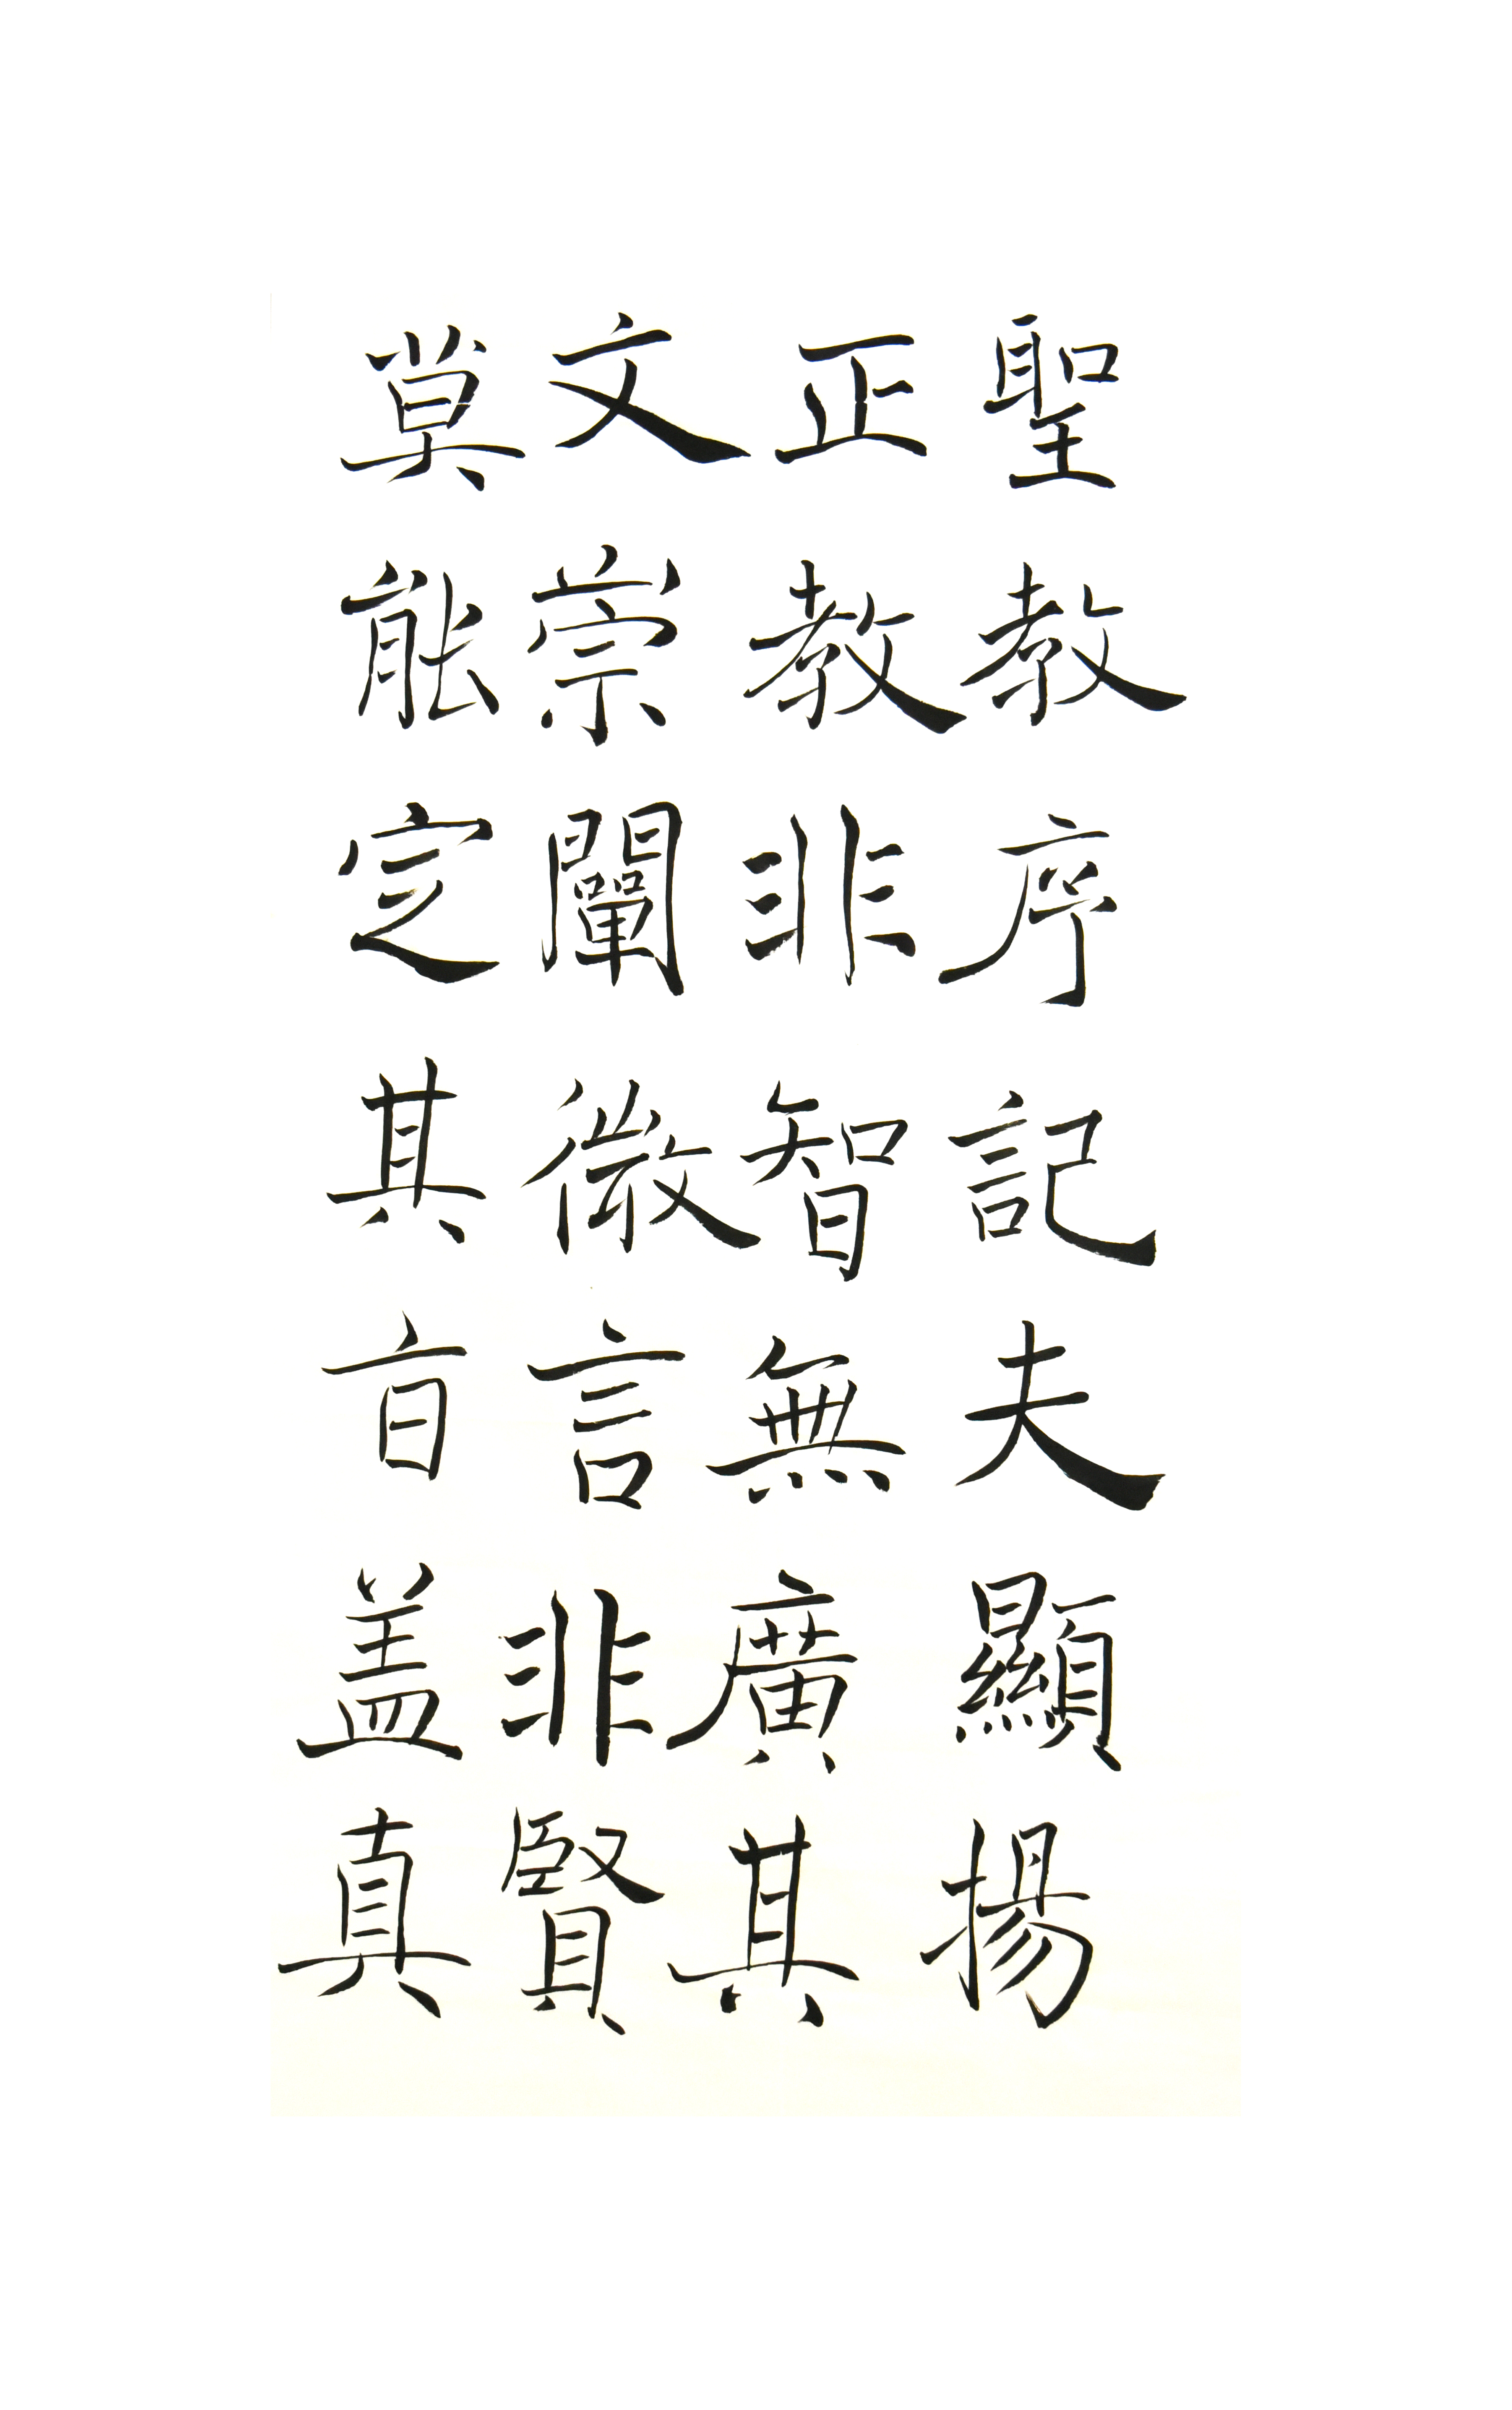 聖教序記夫顯揚
正教非智無廣其
文崇闡微言非賢
莫能定其旨盖真